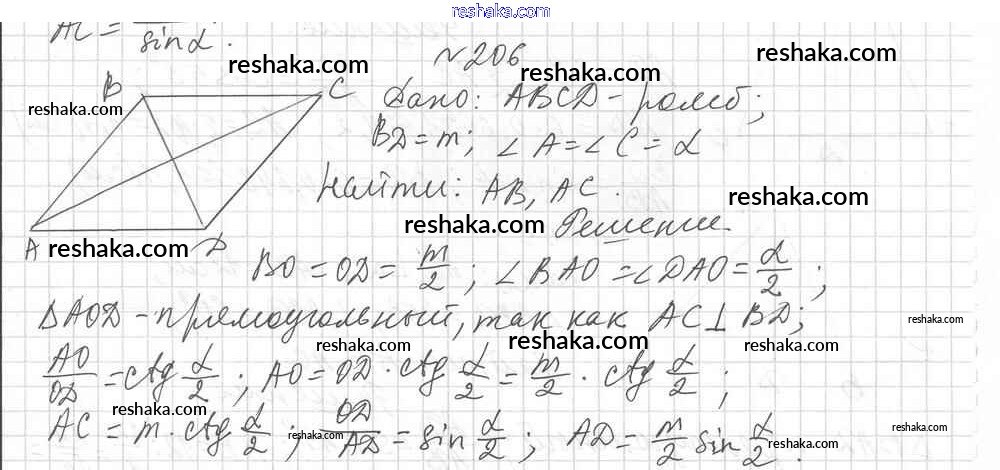 reshaka.com
AC = ———
sin α.
№206
reshaka.com
reshaka.com
reshaka.com
B C Дано: ABCD - ромб;
reshaka.com
BD = m; ∠A = ∠C = α
Найти: AB, AC.
reshaka.com
reshaka.com
A D Решение.
reshaka.com
BO = OD = m/2; ∠BAO = ∠DAO = α/2;
ΔAOD - прямоугольный, так как AC ⊥ BD;
reshaka.com
reshaka.com
reshaka.com
AO/OD = ctg α/2; AO = OD · ctg α/2 = m/2 · ctg α/2;
reshaka.com
AC = m · ctg α/2; OD/AD = sin α/2; AD = m/2 sin α/2.
reshaka.com
reshaka.com
reshaka.com